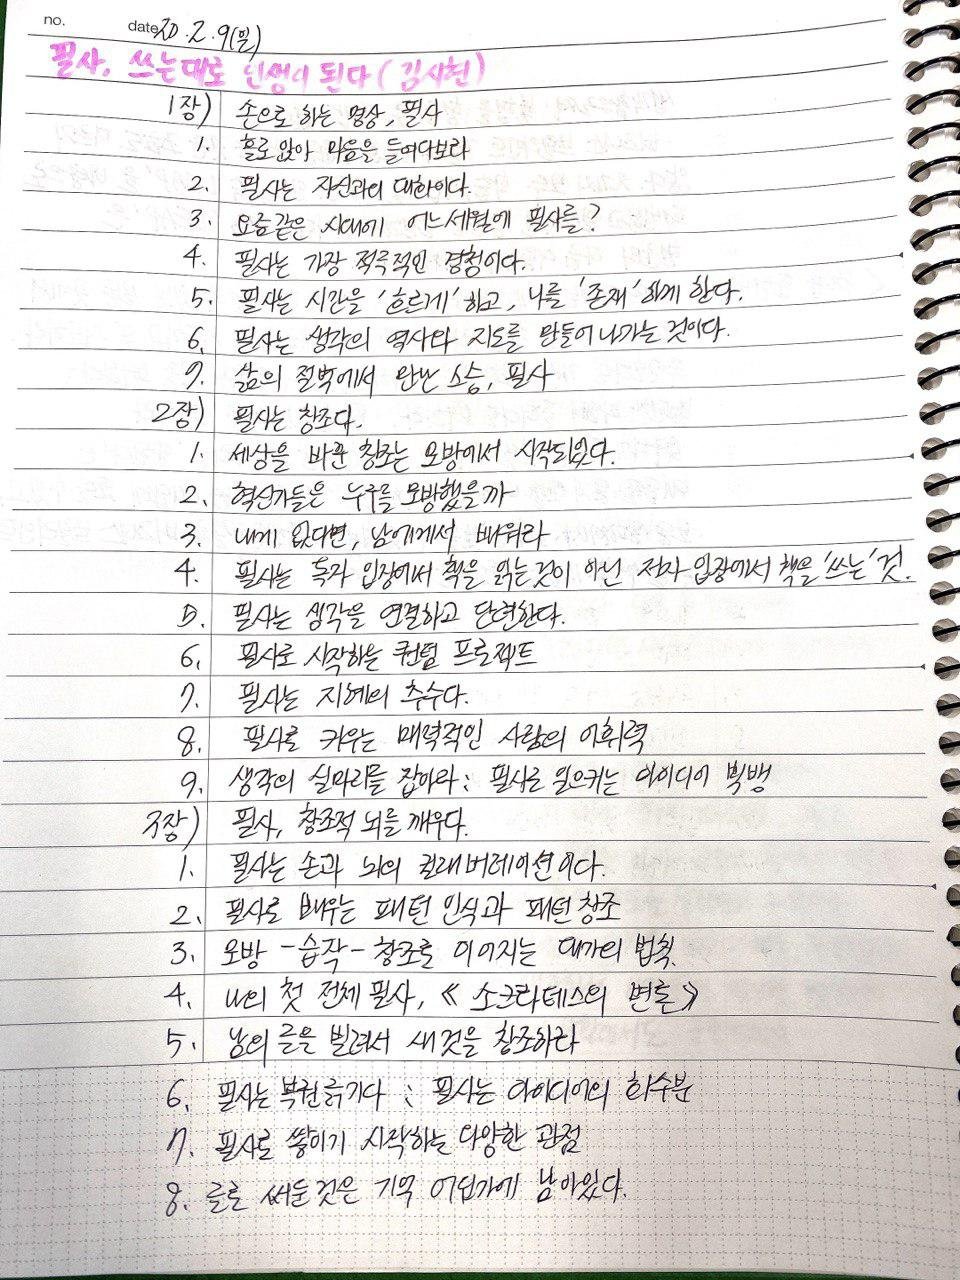 no.
date 20. 2. 9(일)
필사, 쓰는대로 인생이 된다 (김시현)
1장) 손으로 하는 명상, 필사
1. 홀로 앉아 마음을 들여다보라
2. 필사는 자신과의 대화이다.
3. 요즘같은 시대에 어느세월에 필사를?
4. 필사는 가장 적극적인 경청이다.
5. 필사는 시간을 '흐르게'하고, 나를 '존재'하게 한다.
6. 필사는 생각의 역사와 지도를 만들어 나가는 것이다.
7. 삶의 절벽에서 만난 스승, 필사
2장) 필사는 창조다.
1. 세상을 바꾼 창조는 모방에서 시작되었다.
2. 혁신가들은 누구를 모방했을까
3. 내게 없다면, 남에게서 배워라
4. 필사는 독자 입장에서 책을 읽는것이 아닌 저자 입장에서 책을 '쓰는' 것.
5. 필사는 생각을 연결하고 단련한다.
6. 필사로 시작하는 퀀텀 프로젝트
7. 필사는 지혜의 추수다.
8. 필사로 키우는 매력적인 사람의 어휘력
9. 생각의 실마리를 잡아라 : 필사로 일으키는 아이디어 빅뱅
3장) 필사, 창조적 뇌를 깨우다.
1. 필사는 손과 뇌의 컬래버레이션이다.
2. 필사로 배우는 패턴 인식과 패턴 창조
3. 모방 - 습작 - 창조로 이어지는 대가의 법칙.
4. 나의 첫 전체 필사, 《 소크라테스의 변론 》
5. 남의 글을 빌려서 새것을 창조하라
6. 필사는 복권 긁기다 : 필사는 아이디어의 화수분
7. 필사로 쌓이기 시작하는 다양한 관점
8. 글로 써둔것은 기억 어딘가에 남아있다.